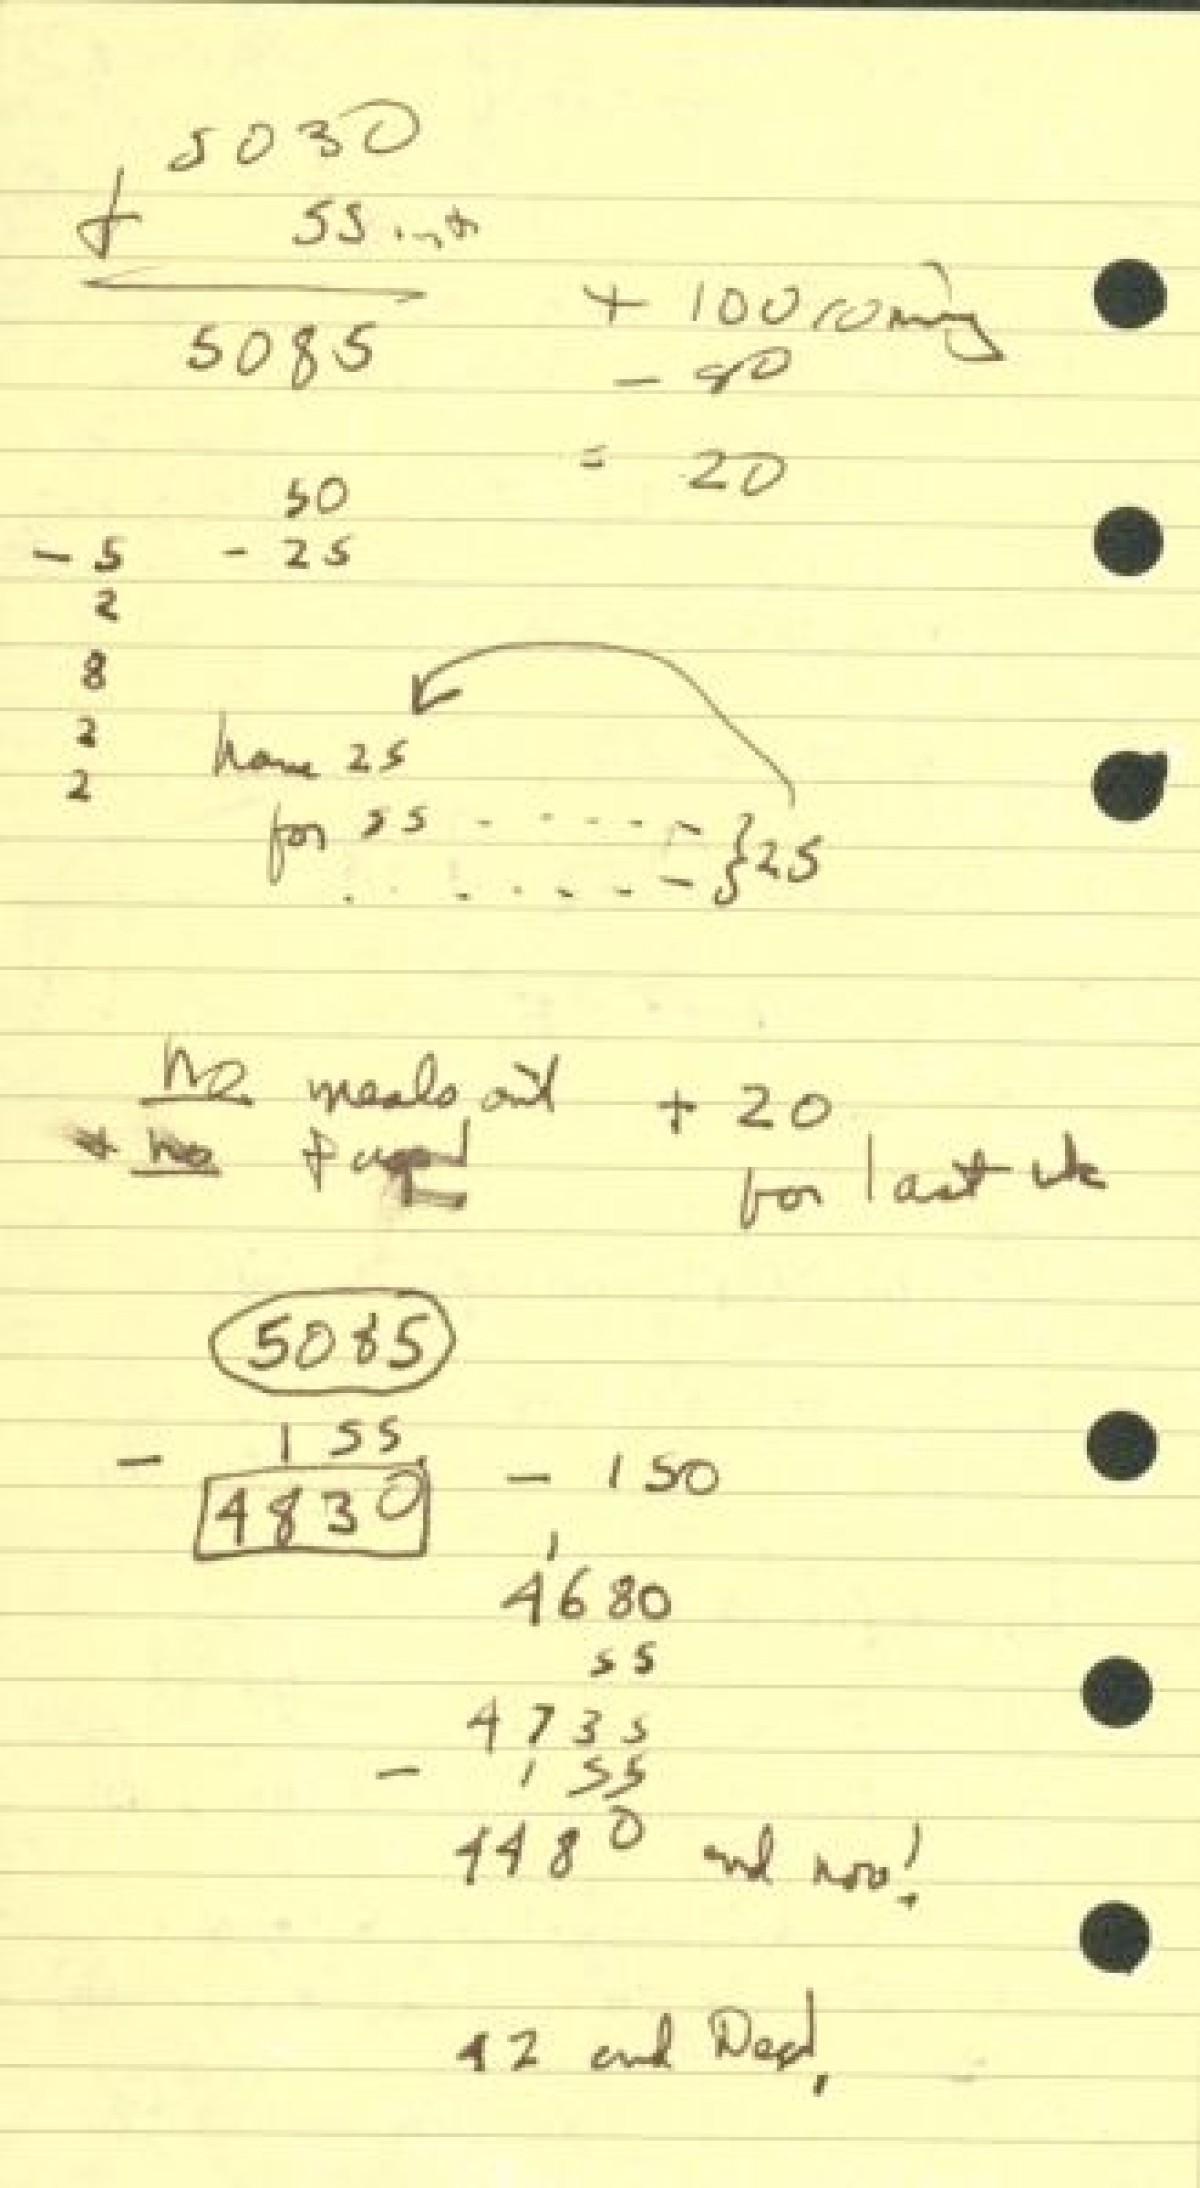 5030
+ 55 int
5085
+ 100 coming
- 80
= 20
50
- 5 - 25
2
8
2
2
have 25
for 25
} 25
No meals out + 20
+ No
for last wk
5085
- 155
4830 - 150
4680
55
4735
- 155
4480 end nov!
42 end Dec!